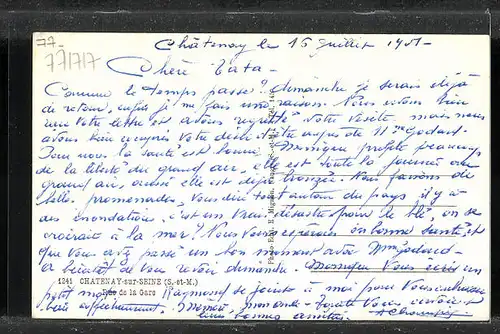 77-
77171
Châtenay le 16 Juillet 1951-
Chère Tata-
Comme le temps passe? dimanche je serais déjà
de retour, enfin je me fais une raison. Nous avons bien
reçu votre lettre et avons regretté votre visite, mais nous
avons bien compris votre désir d'être auprès de Mme Godard.
Pour nous la santé est bonne, Monique profite beaucoup
de la liberté, du grand air, elle est toute la journée au
grand air, aussi elle est déjà bronzée. Nous faisons de
belles promenades, vous dire tout autour du pays il y a
des inondations, c'est un vrai désastre pour le blé, on se
croirait à la mer? Nous vous espérons en bonne santé et
que vous avez passé un bon moment avec Mme Godard-
de vous revoir dimanche. Monique vous écris un
1241 CHATENAY-sur-SEINE (S.-et-M.)
Rue de la Gare
petit mot Raymond se joint à moi pour vous embrasser
bien affectueusement. Mémé, demande toute vous envoient
leurs bonnes amitiés.